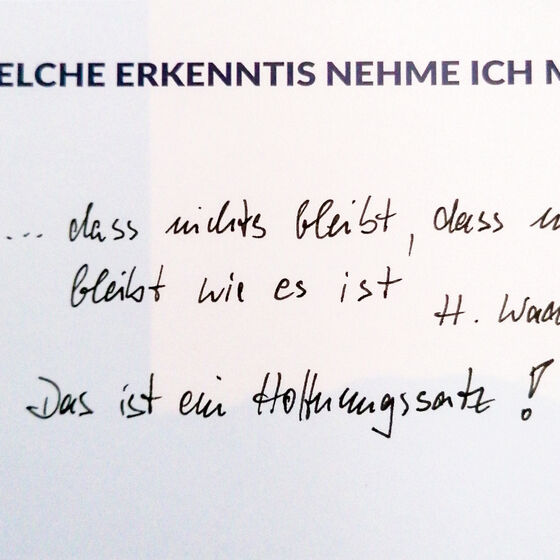 ELCHE ERKENNTIS NEHME ICH M
... dass nichts bleibt, dass n
bleibt wie es ist
H. Wad
Das ist ein Hoffnungssatz!